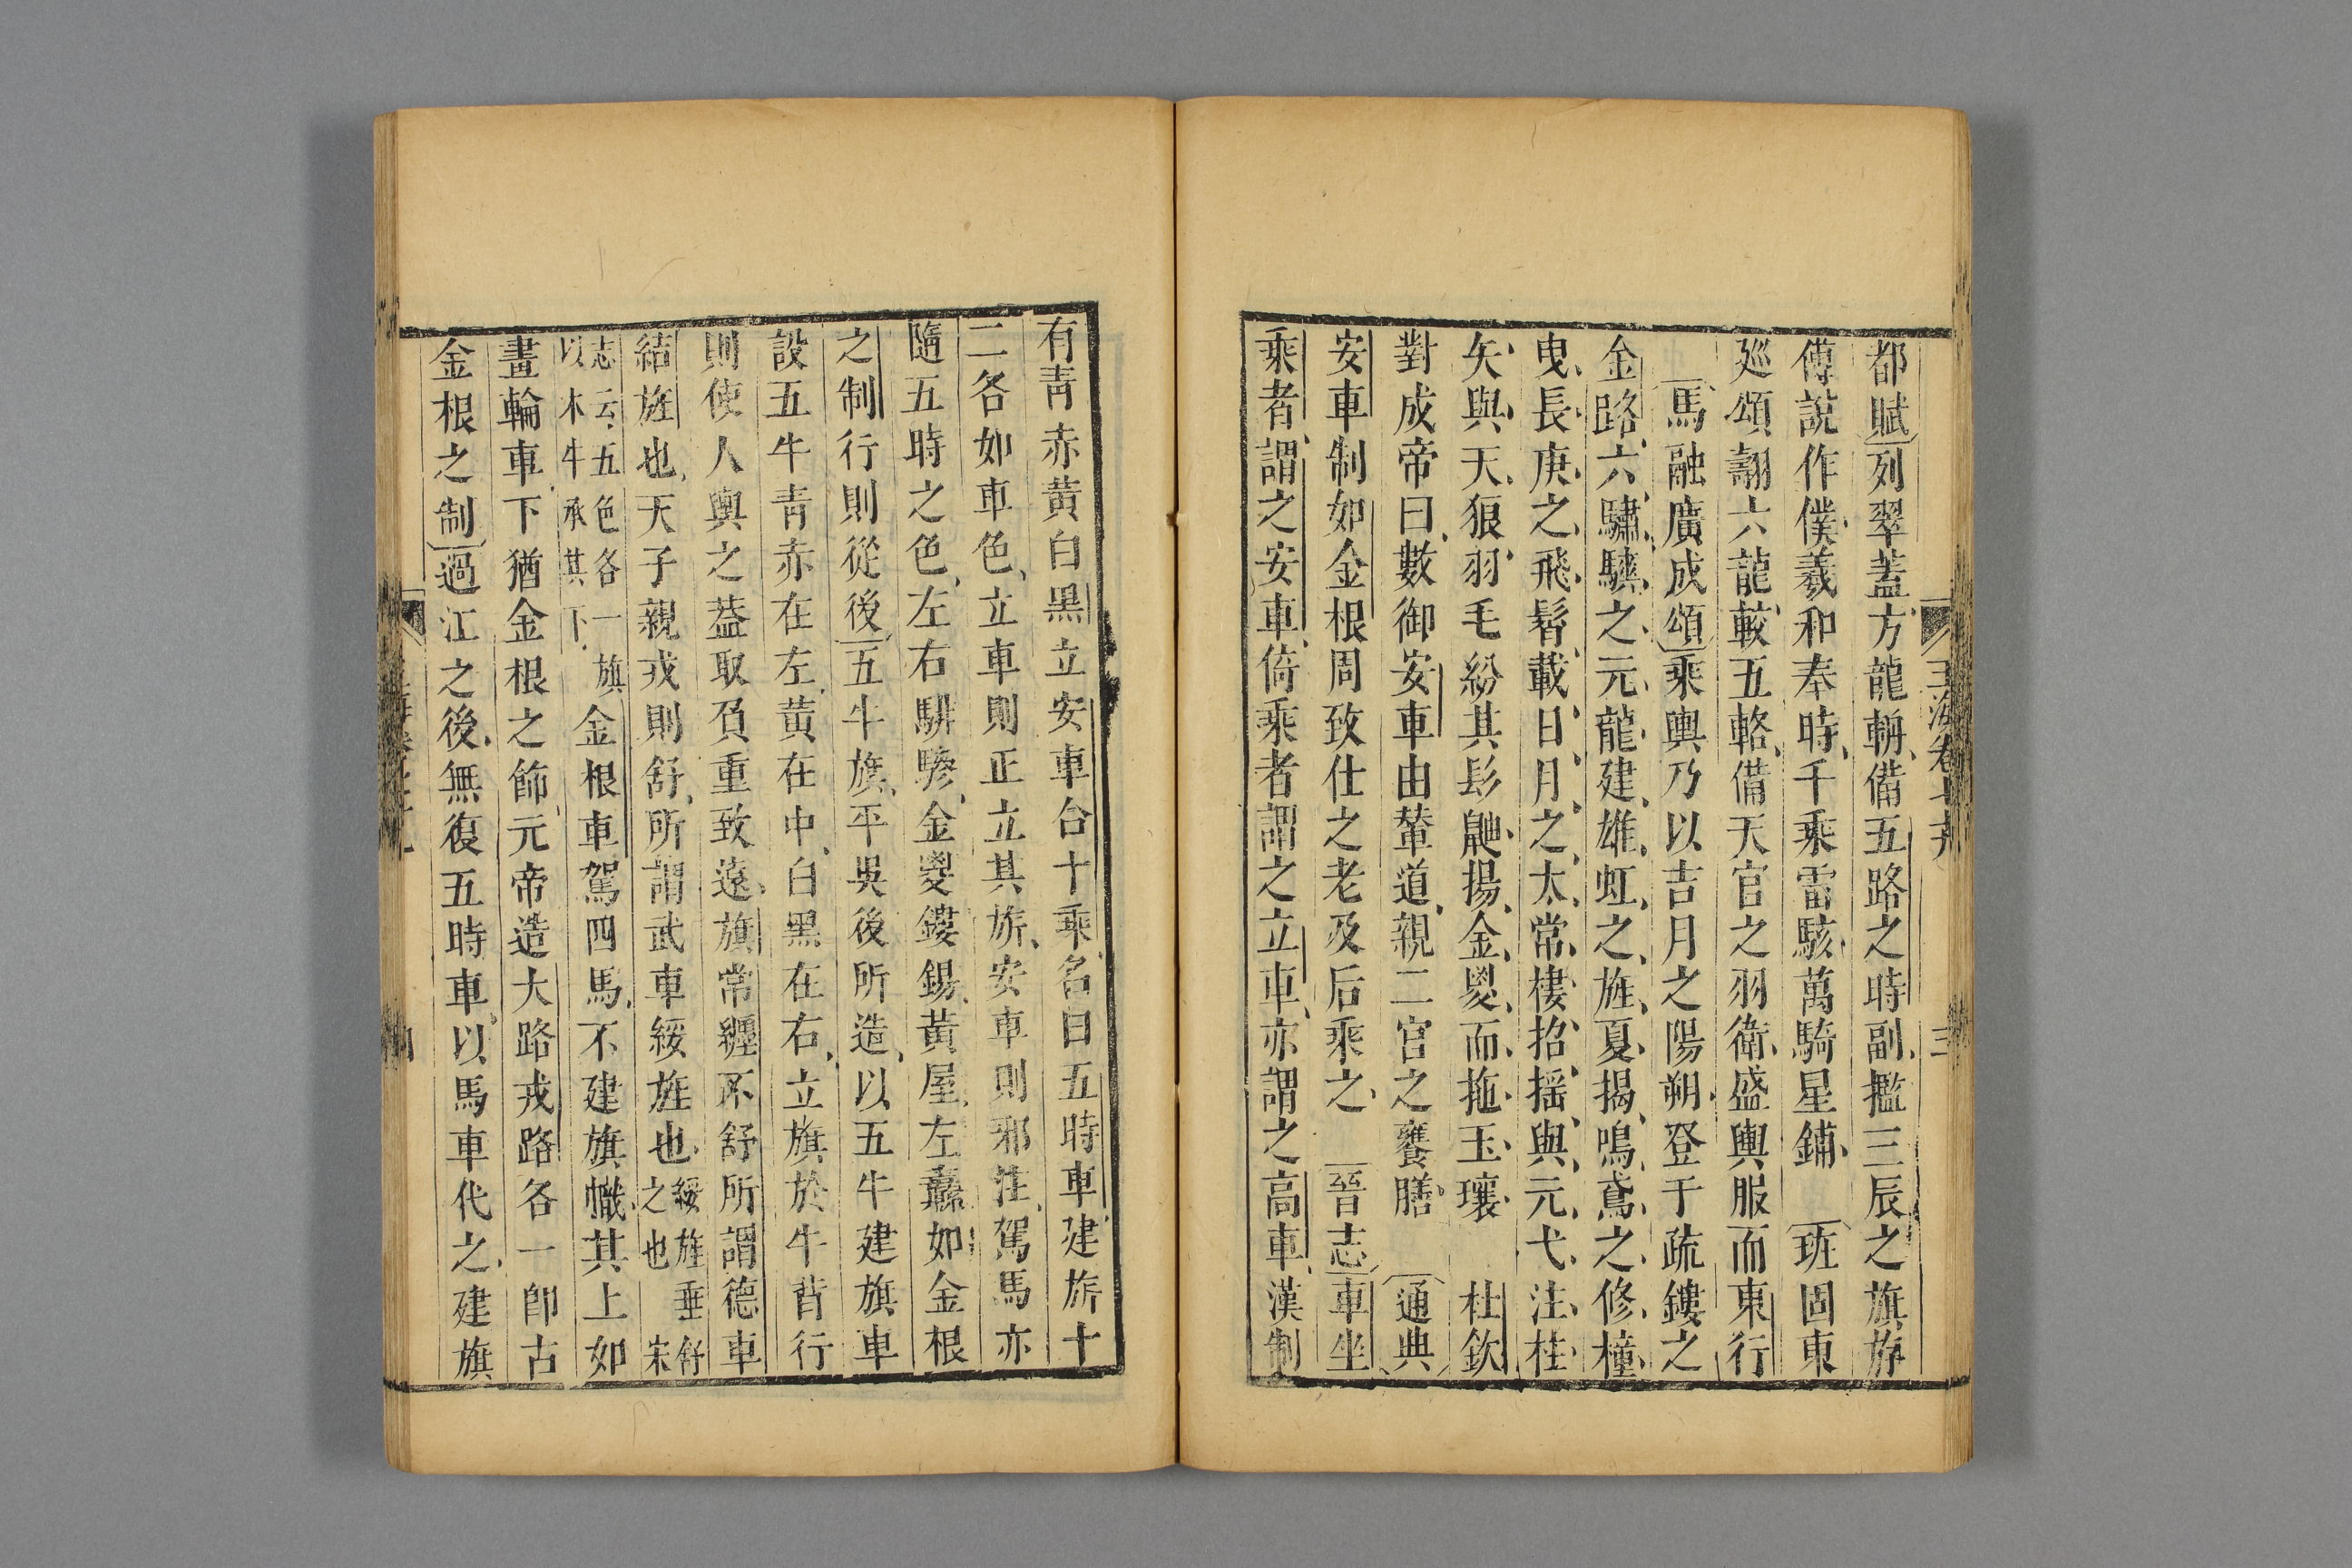 都賦列翠蓋方龍輈備五路之時副摡三辰之旗斿
傅說作僕羲和奉時千乘雷駭萬騎星鋪　班固東
廵頌翿六龍較五輅備天官之羽衛盛輿服而東行
馬融廣成頌乘輿乃以吉月之陽朔登于疏鏤之
金路六驌驦之元龍建雄虹之旌夏揭鳴鳶之修橦
曳長庚之飛髾載日月之太常棲招揺與元弋注枉
矢與天狼羽毛紛其髟鼬揚金㚇而拖玉瓖　杜欽
對成帝曰數御安車由輦道親二官之饔膳　通典
安車制如金根周致仕之老及后乘之　晉志車坐
乘者謂之安車倚乘者謂之立車亦謂之高車漢制
有青赤黄白黒立安車合十乘名曰五時車建旂十
二各如車色立車則正立其旂安車則邪注駕馬亦
隨五時之色左右騑驂金㚇鏤錫黄屋左纛如金根
之制行則從後五牛旗平吳後所造以五牛建旗車
設五牛青赤在左黄在中白黒在右立旗於牛背行
則使人輿之葢取負重致遠旗常纒不舒所謂德車
結旌也天子親戎則舒所謂武車綏旌也綏旌垂舒之也宋
志云五色各一旗以木牛承其下金根車駕四馬不建旗幟其上如
畫輪車下猶金根之飾元帝造大路戎路各一卽古
金根之制過江之後無復五時車以馬車代之建旗